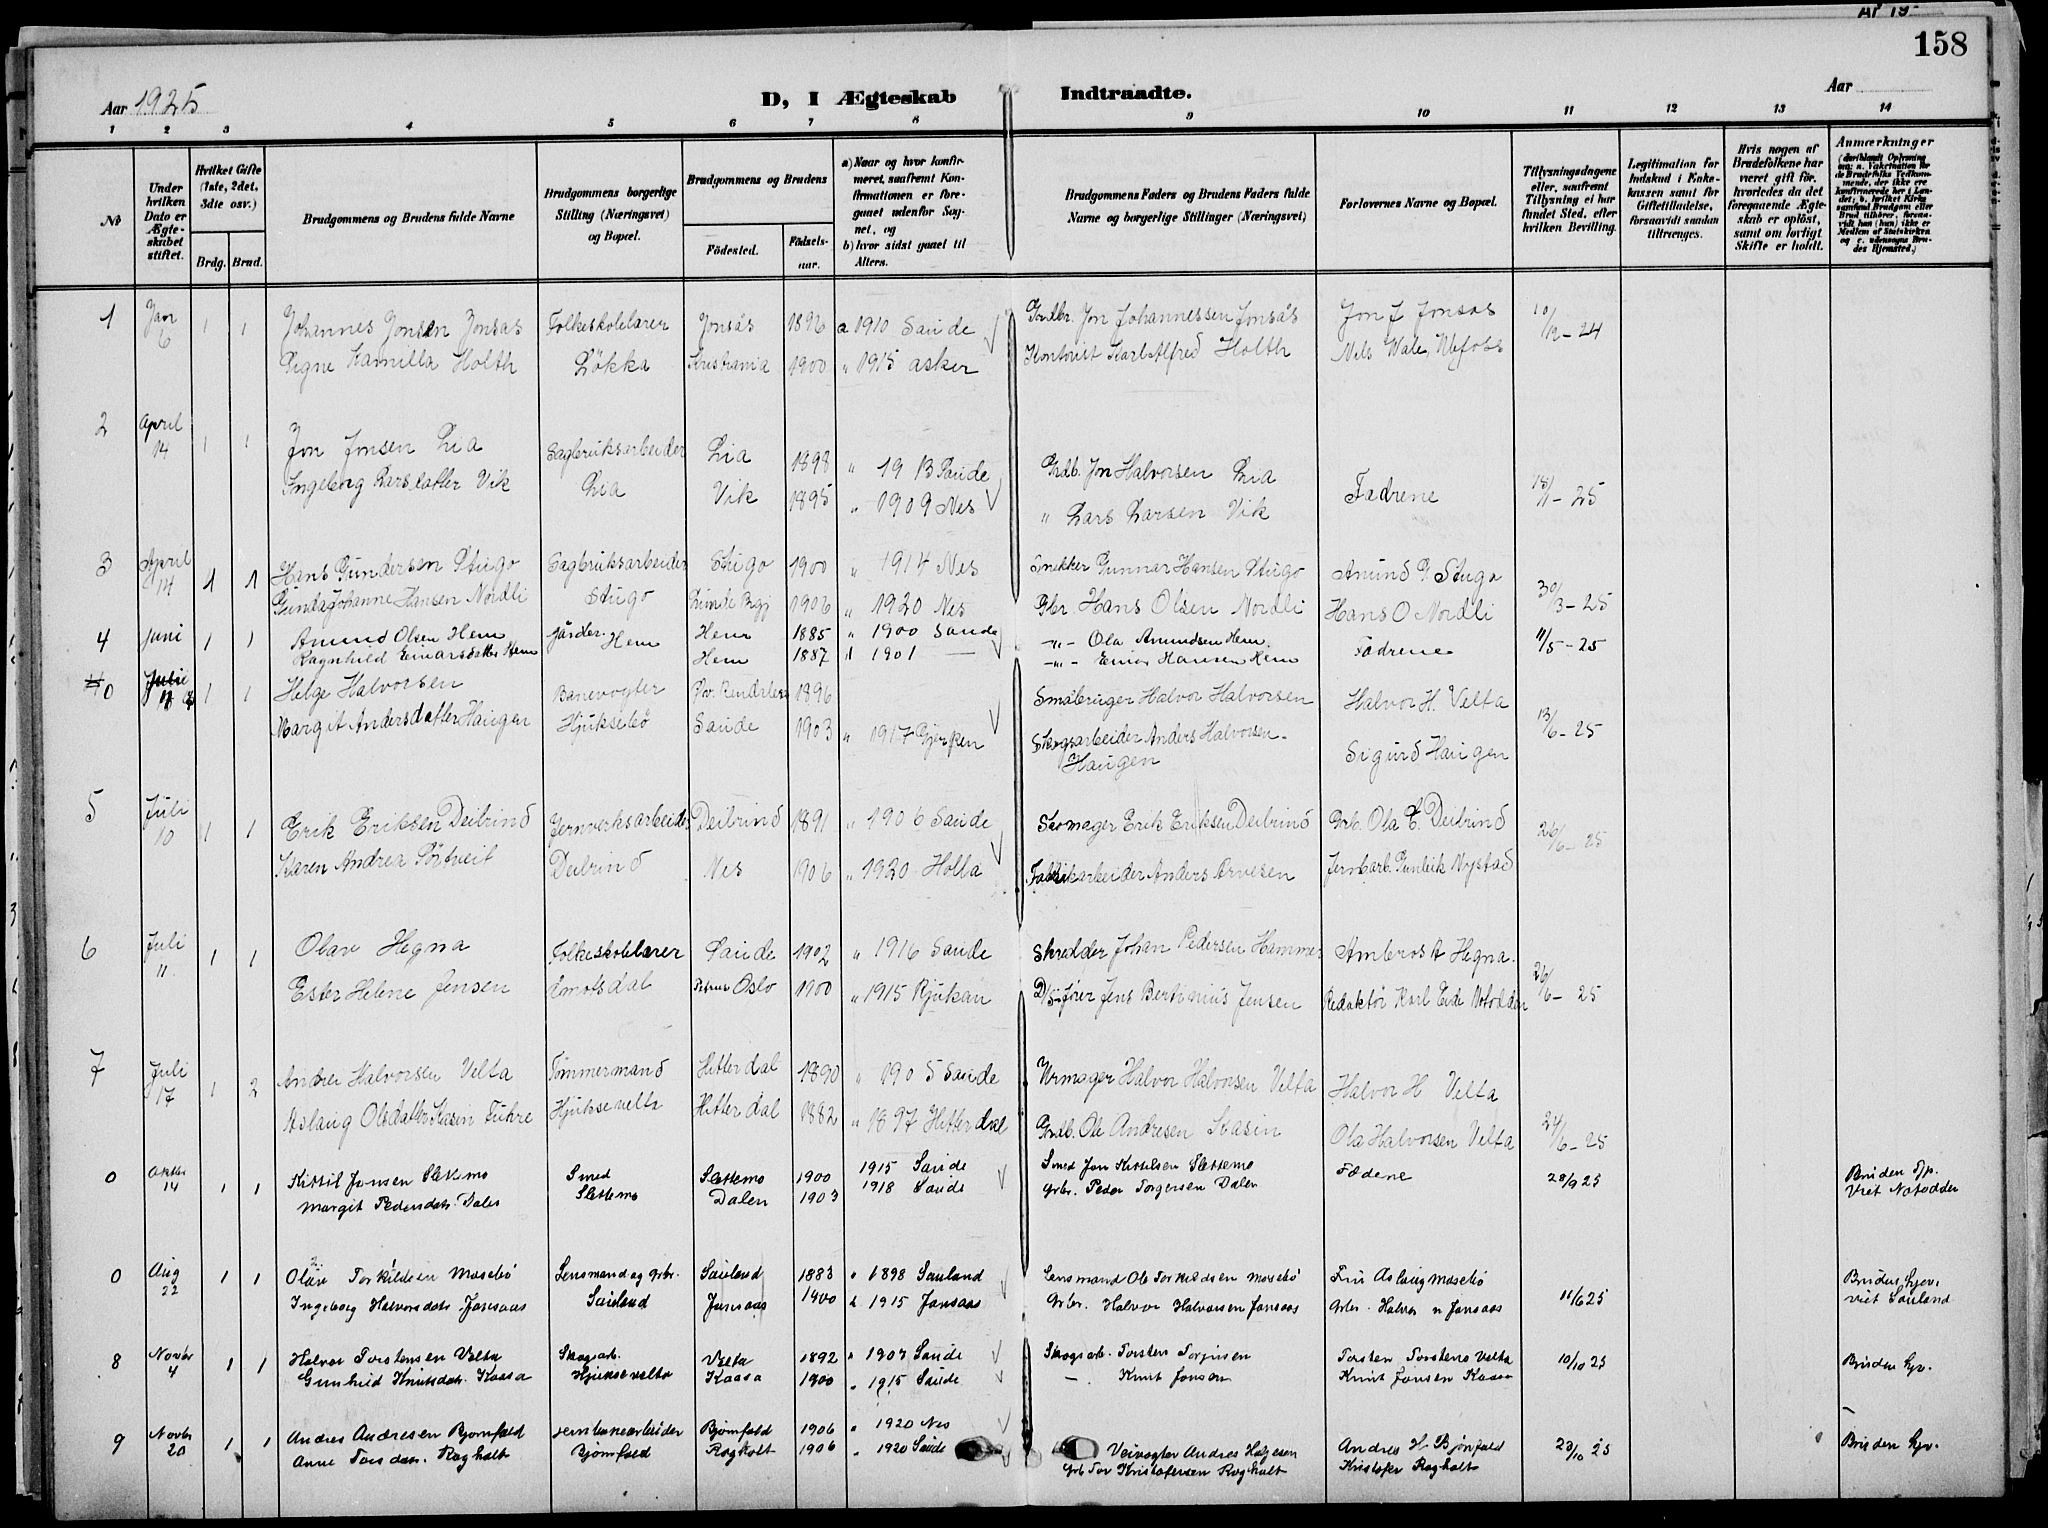 158
Aar 1925
D, I Ægteskab Indtraadte.
Aar
1 2 3 4 5 6 7 8 9 10 11 12 13 14
No
Under hvilken Dato er Ægteskabet stiftet.
Hvilket Gifte (1ste, 2det, 3die osv.)
Brdg. Brud.
Brudgommens og Brudens fulde Navne
Brudgommens borgerlige Stilling (Næringsvei) og Bopæl.
Brudgommens og Brudens
Födested. Födselsaar.
a) Naar og hvor konfirmeret, saafremt Konfirmationen er foregaaet udenfor Sognet, og
b) hvor sidst gaaet til Alters.
Brudgommens Faders og Brudens Faders fulde Navne og borgerlige Stillinger (Næringsvei)
Forlovernes Navne og Bopæl.
Tillysningsdagene eller, saafremt Tillysning ei har fundet Sted, efter hvilken Bevilling.
Legitimation for Indskud i Enkekassen samt for Giftetilladelse, forsaavidt saadan tiltrænges.
Hvis nogen af Brudefolkene har været gift för, hvorledes da det foregaaende Ægteskab er oplöst, samt om lovligt Skifte er holdt.
Anmærkninger
1 Jan 6 1 1 Johannes Jonsen Jonsås Folkeskolelærer Jonsås 1896 a 1910 Saude Grdbr. Jon Johannessen Jonsås Jon J Jonsås 10/12 - 24
Signe Kamilla Holth Løkka Kristiania 1900 " 1915 Asker Kontorist Karl Alfred Holth Nils
2 April 14 1 1 Jon Jonsen Lia Sagbruksarbeider Lia 1898 " 19 13 Saude Grdb. Jon Halvorsen Lia Fædrene 18/1 - 25
Ingeborg Larsdatter Vik Lia Vik 1895 " 1909 Nes " Lars Larsen Vik
3 April 14 1 1 Hans Gundersen Stugo Sagbruksarbeider Stugo 1900 " 1914 Nes Snekker Gunnar Hansen Stugo Amund G Stugo 30/3 - 25
Gunda Johanne Hansen Nordli Stugo Lunde 1906 " 1920 Nes Gbr Hans Olsen Nordli Hans O Nordli
4 Juni 1 1 Amund Olsen Hem Hem 1885 " 1900 Saude -"- Ola Amundsen Hem Fædrene 11/5 - 25
Ragnhild Einarsdatter Hem Hem Hem 1887 " 1901 — -"- Einar Hansen Hem
0 1 1 Helge Halvorsen Banevogter 1896 Småbruger Halvor Halvorsen Halvor H. Velta 13/6 - 25
Margit Andersdatter Haugen Hjuksebø Saude 1903 " 1917 Gjerpen Skogsarbeider Anders Halvorsen Haugen Sigurd Haugen
5 Juli 10 1 1 Erik Eriksen Deilrind Jernverksarbeider Deilrind 1891 " 1906 Saude Skomager Erik Eriksen Deilrind Grb. Ola E. Deilrind 26/6 - 25
Karen Andrea Sörtveit Deilrind Nes 1906 " 1920 Holla Fabrikarbeider Anders Arvesen Jernarb. Gunleik Nystad
6 Juli 11 1 1 Olav Hegna Folkeskolelærer Saude 1902 " 1916 Saude Skredder Johan Pedersen Hammer Ambros A Hegna. 26/6 - 25
Ester Helene Jensen Åmotsdal Oslo 1900 " 1915 Rjukan Jens Bertinius Jensen Redaktör Karl Eide Notodden
7 Juli 17 1 2 Andres Halvorsen Velta Tömmermand Hitterdal 1890 " 1905 Saude Urmager Halvor Halvorsen Velta Halvor H Velta 24/6 - 25
Aslaug Olsdatter Kasin Fuhre Hjuksevelta Hitterdal 1882 " 1897 Hitterdal Grdb. Ole Andresen Kasin Ola Halvorsen Velta
0 Oktbr 14 1 1 Kittil Jonsen Slettemo Smed Slettemo 1900 1915 Saude Smed Jon Kittelsen Slettemo Fædrene 28/9 25 Bruden Tjp.
Margit Pedersdatr. Dalen Slettemo Dalen 1903 1918 Saude Grbr. Peder Torgersen Dalen Viet Notodden
0 Aug 22 1 1 Olav Torkildsen Mosebö Lensmand og grbr. Sauland 1883 " 1898 Sauland Lensmand Ole Torkildsen Mosebö Fru Aslaug Mosebö 11/6 25 Bruden hjv.
Ingeborg Halvorsdatr. Jonsaas Sauland Jonsaas 1900 " 1915 Jonsaas Grbr. Halvor Halvorsen Jonsaas Grbr. Halvor Jonsaas viet Sauland
8 Novbr 4 1 1 Halvor Torstensen Velta Skogsarb. Velta 1892 " 1907 Saude Skogsarb. Torsten Torjusen Torsten Torstens. Velta 10/10 25 Bruden hjv.
Gunhild Knutsdatr. Kaasa Hjuksevelta Kaasa 1900 " 1915 Saude — Knut Jonsen Knut Jonsen Kaasa
9 Novbr 20 1 1 Andres Andresen Bjømfald Jernbanearbeider Bjømfald 1906 " 1920 Nes Veivogter Andres Halgesen Andres H. Bjönfald 23/10 25 Bruden hjv.
Anne Torsdatr. Rogholt Bjømfald Rogholt 1906 " 1920 Saude Grb Tor Kristofersen Rogholt Kristofer Rogholt